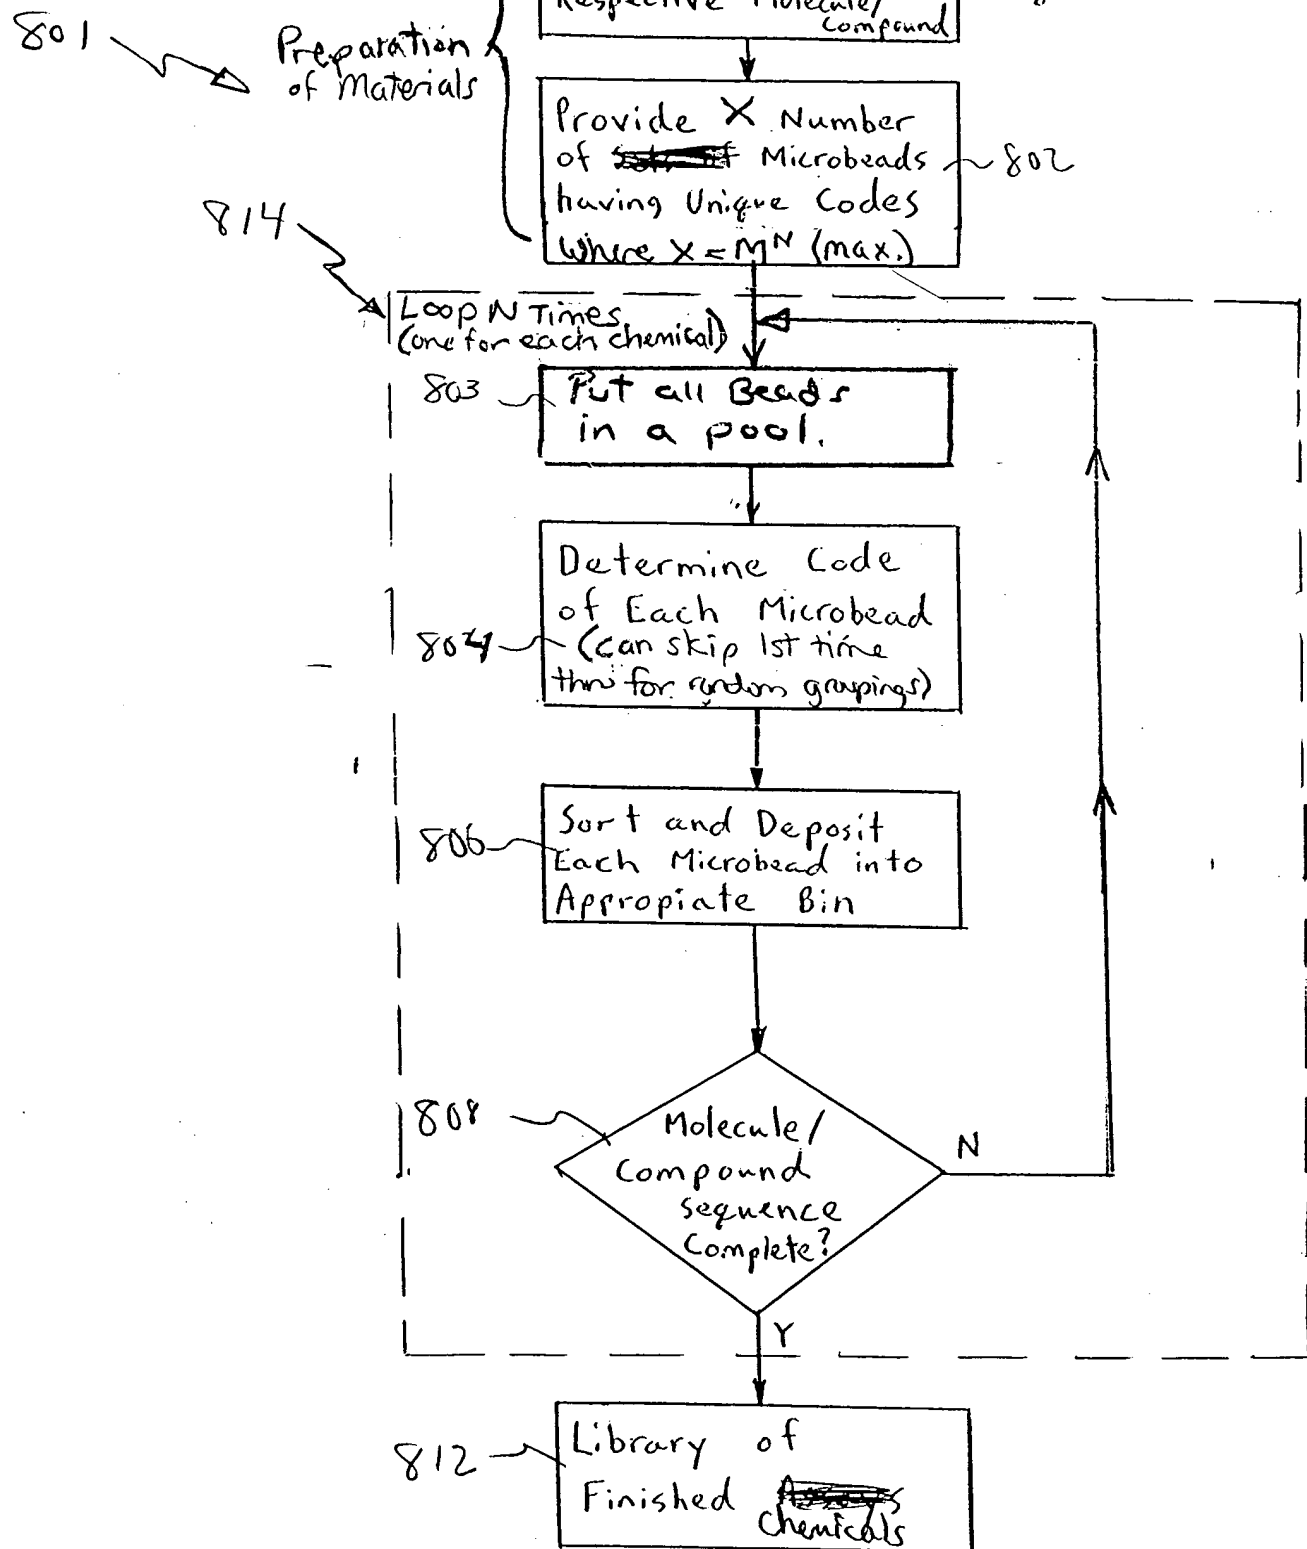 Respective Molecule/
Compound
801
Preparation
of Materials
Provide X Number
of Microbeads
having Unique Codes
Where X = M^N (max.)
802
814
Loop N Times
(one for each chemical)
803
Put all Beads
in a pool.
Determine Code
of Each Microbead
(can skip 1st time
thru for random groupings)
804
806
Sort and Deposit
Each Microbead into
Appropiate Bin
808
Molecule/
Compound
sequence
Complete?
N
Y
812
Library of
Finished
Chemicals